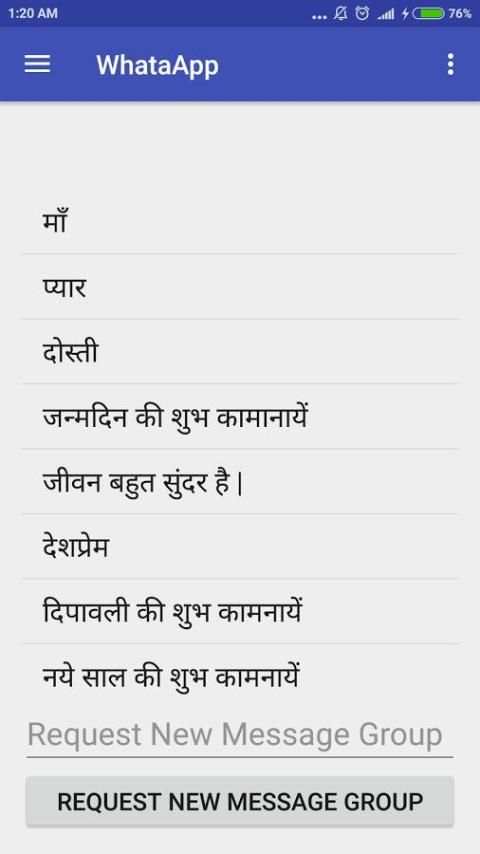 1:20 AM
76%
WhataApp
माँ
प्यार
दोस्ती
जन्मदिन की शुभ कामानायें
जीवन बहुत सुंदर है |
देशप्रेम
दिपावली की शुभ कामनायें
नये साल की शुभ कामनायें
Request New Message Group
REQUEST NEW MESSAGE GROUP